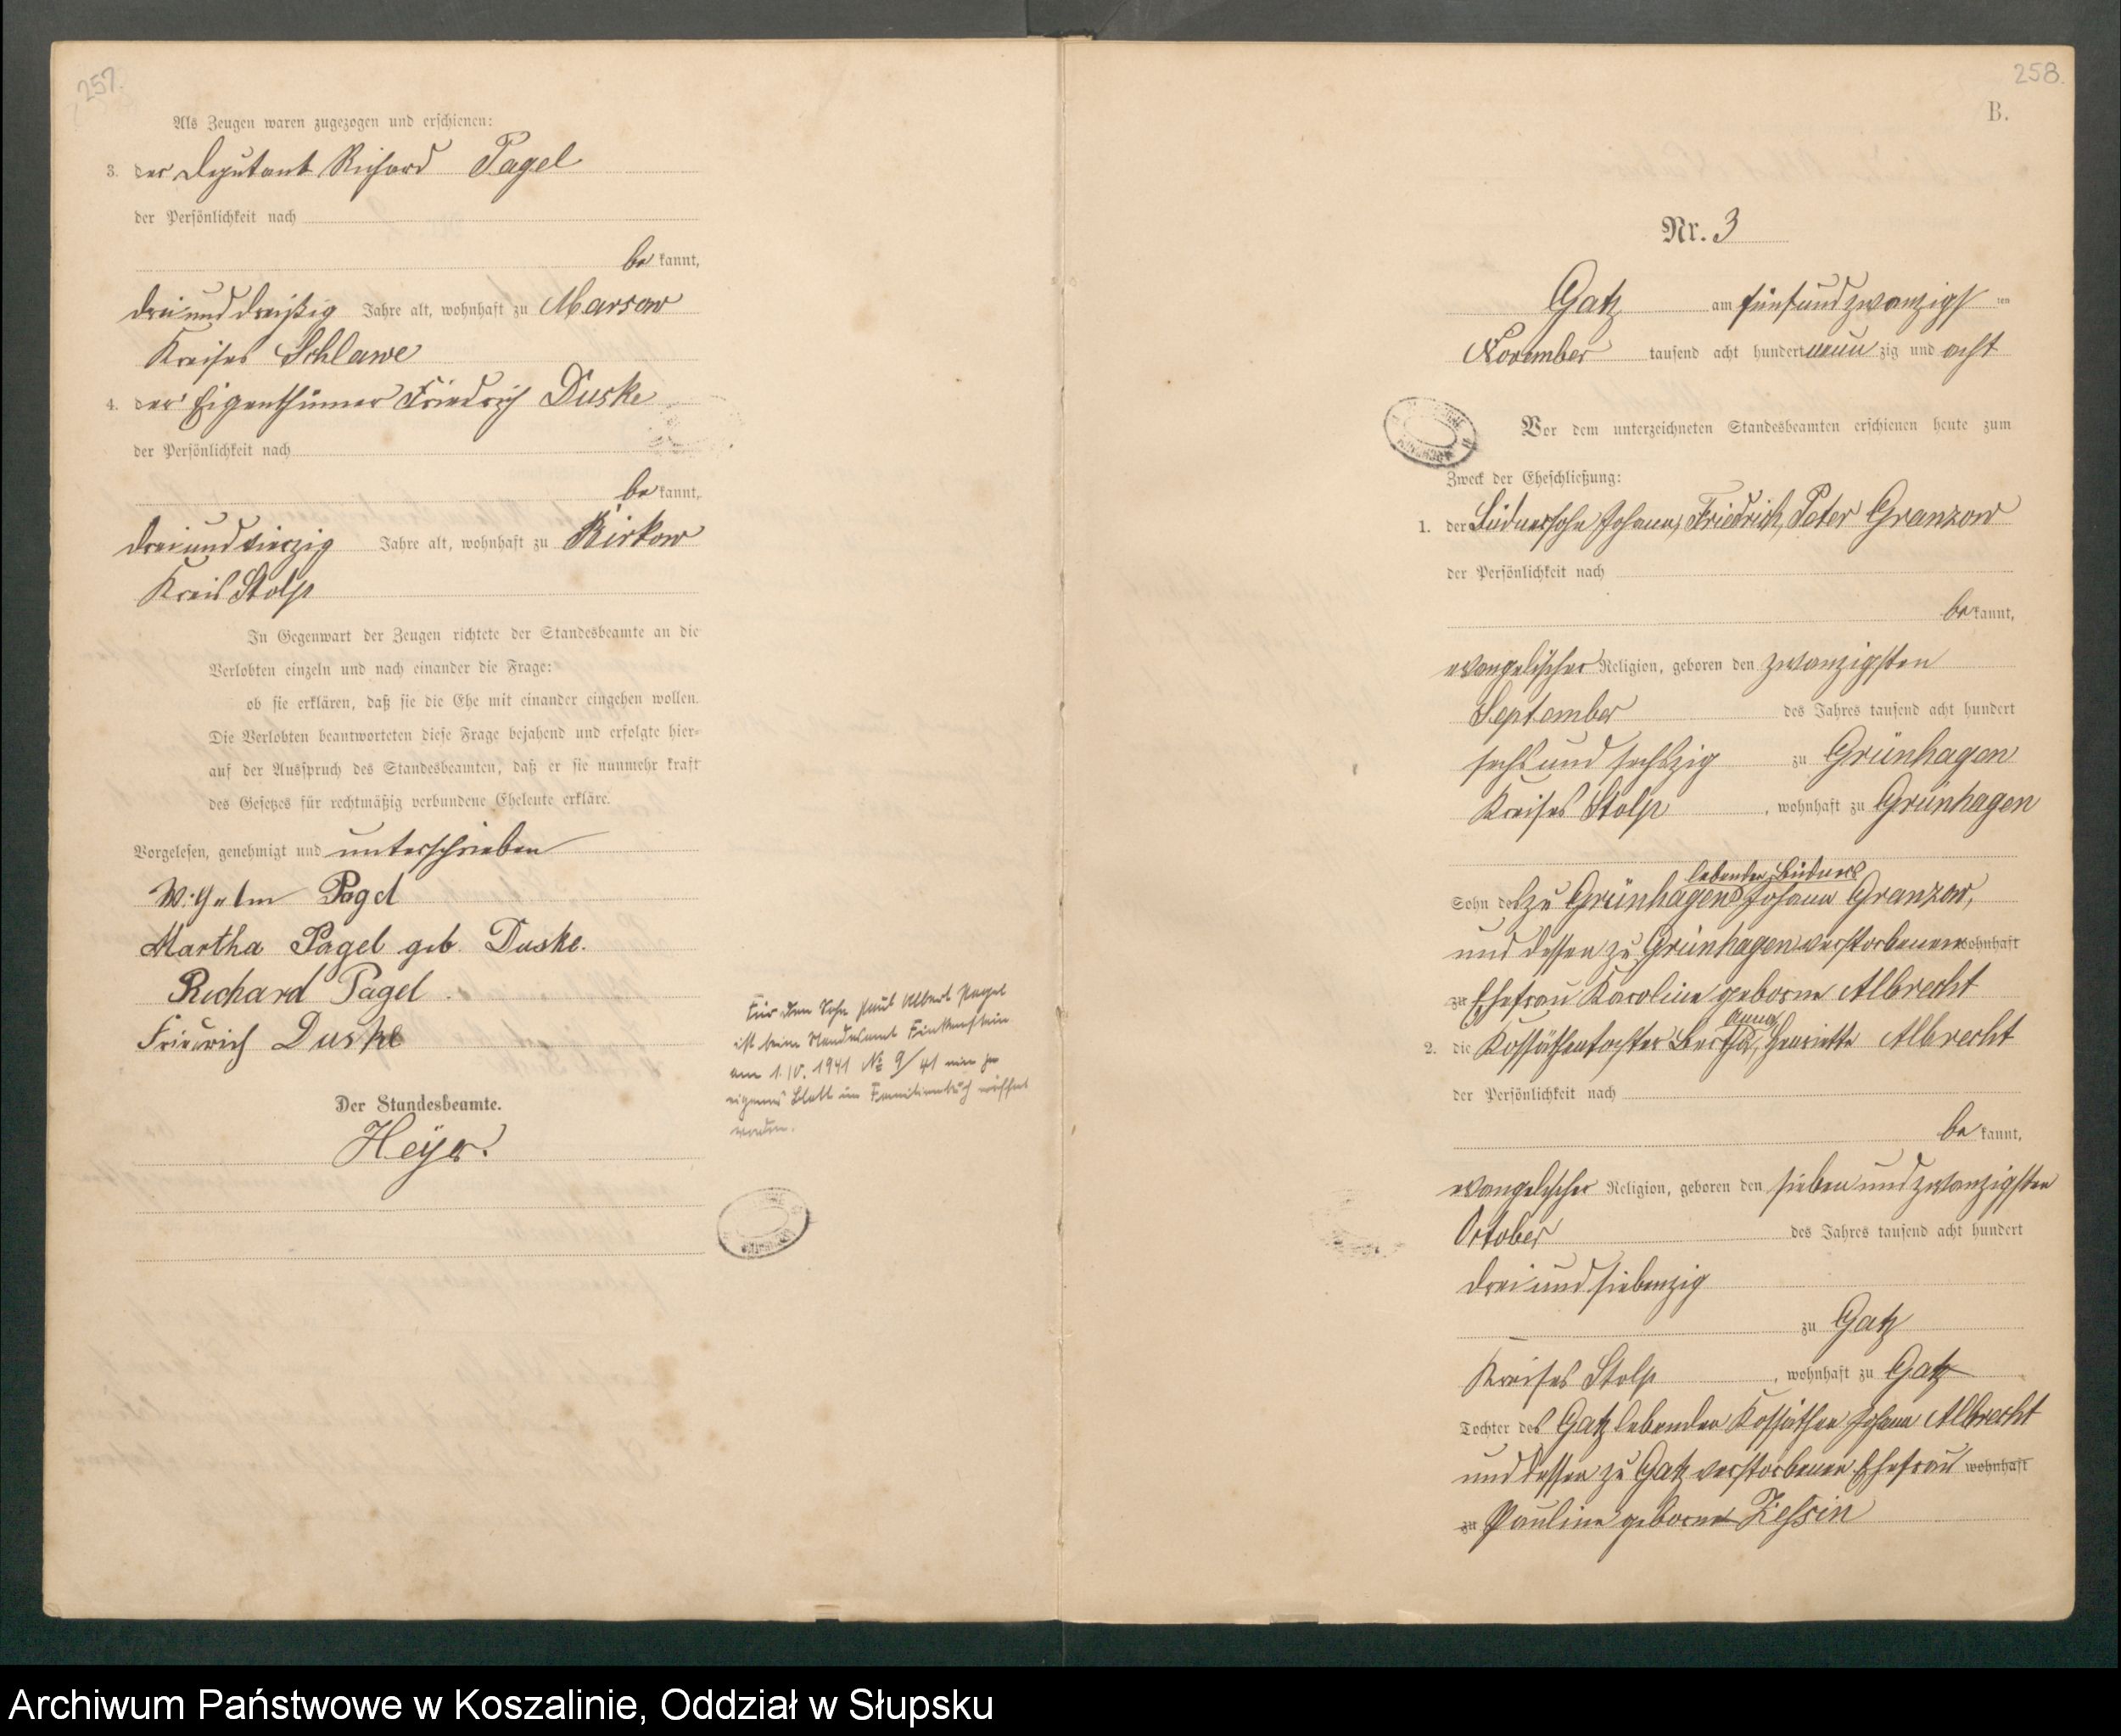 257.
Als Zeugen waren zugezogen und erschienen:
3. der Deputant Richard Pagel
der Persönlichkeit nach
be kannt,
drei und dreißig Jahre alt, wohnhaft zu Marsow
Kreises Schlawe
4. der Eigenthümer Friedrich Duske
der Persönlichkeit nach
be kannt,
drei und vierzig Jahre alt, wohnhaft zu Birkow
Kreis Stolp
In Gegenwart der Zeugen richtete der Standesbeamte an die
Verlobten einzeln und nach einander die Frage:
ob sie erklären, daß sie die Ehe mit einander eingehen wollen.
Die Verlobten beantworteten diese Frage bejahend und erfolgte hier-
auf der Ausspruch des Standesbeamten, daß er sie nunmehr kraft
des Gesetzes für rechtmäßig verbundene Eheleute erkläre.
Vorgelesen, genehmigt und unterschrieben
Wilhelm Pagel
Martha Pagel geb. Duske.
Richard Pagel.
Friedrich Duske
Der Standesbeamte.
Heyer.
Für den Sohn Paul Albert Pagel
ist beim Standesamt Finkenstein
am 1.10.1941 No 9/41 ein
eigenes Blatt im Familienbuch eröffnet
worden.
258.
B.
Nr. 3
Gatz am fünf und zwanzigsten
November tausend acht hundert neun zig und acht
Vor dem unterzeichneten Standesbeamten erschienen heute zum
Zweck der Eheschließung:
1. der Büdnersohn Johann, Friedrich, Peter Granzow
der Persönlichkeit nach
be kannt,
evangelischer Religion, geboren den zwanzigsten
September des Jahres tausend acht hundert
sechs und sechszig zu Grünhagen
Kreises Stolp, wohnhaft zu Grünhagen
lebenden Büdners
Sohn des zu Grünhagen Johann Granzow,
und dessen zu Grünhagen verstorbenen wohnhaft
zu Ehefrau Karoline geborne Albrecht
Anna
2. die Kossäthentochter Bertha, Henriette Albrecht
der Persönlichkeit nach
be kannt,
evangelischer Religion, geboren den sieben und zwanzigsten
October des Jahres tausend acht hundert
drei und siebenzig
zu Gatz
Kreises Stolp, wohnhaft zu Gatz
Tochter des Gatz lebenden Kossäthen Johann Albrecht
und dessen zu Gatz verstorbenen Ehefrau wohnhaft
zu Pauline geborne Zessin
Archiwum Państwowe w Koszalinie, Oddział w Słupsku